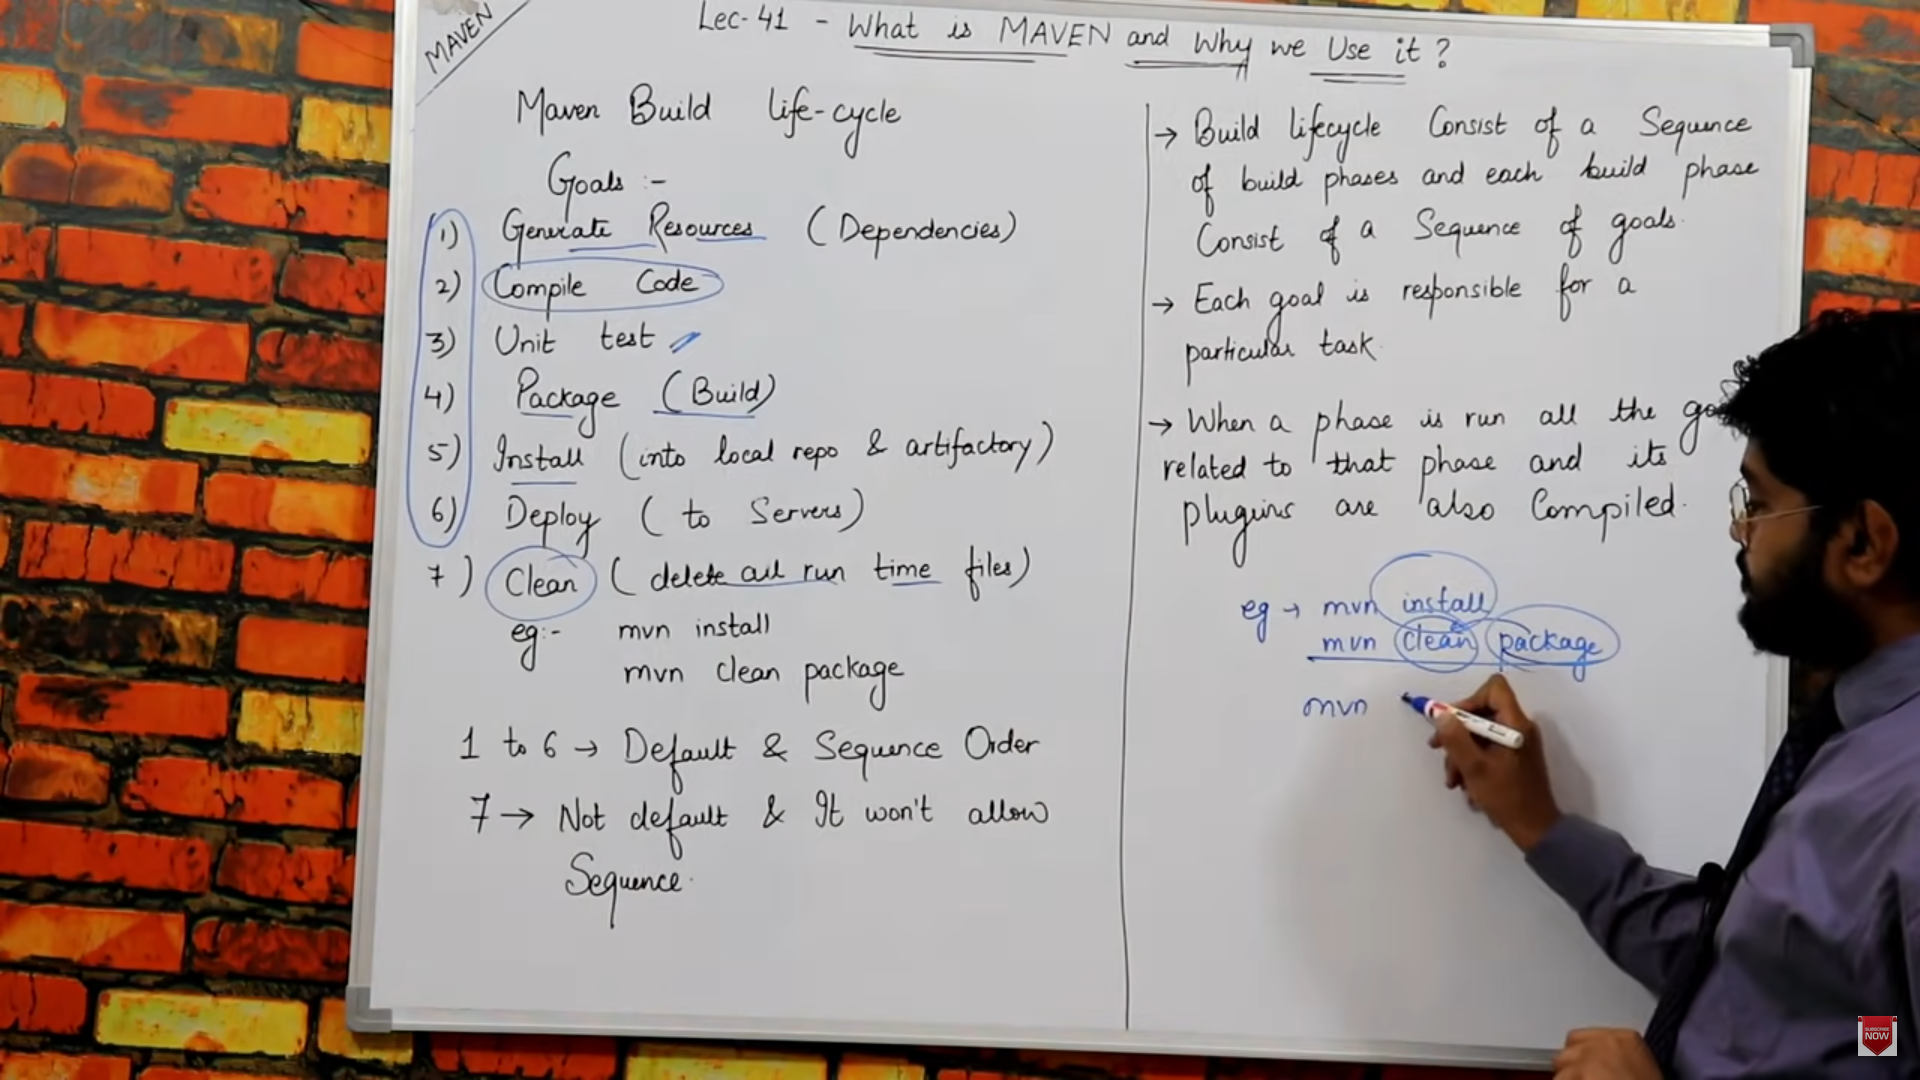 MAVEN
Lec-41 - What is MAVEN and Why we Use it?
Maven Build life-cycle
Goals :-
1) Generate Resources (Dependencies)
2) Compile Code
3) Unit test
4) Package (Build)
5) Install (into local repo & artifactory)
6) Deploy (to Servers)
7) Clean (delete all run time files)
eg:- mvn install
mvn clean package
1 to 6 → Default & Sequence Order
7 → Not default & It won't allow
Sequence.
→ Build lifecycle Consist of a Sequence
of build phases and each build phase
Consist of a Sequence of goals.
→ Each goal is responsible for a
particular task.
→ When a phase is run all the
related to that phase and its
plugins are also Compiled.
eg → mvn install
mvn clean package
mvn
SUBSCRIBE
NOW